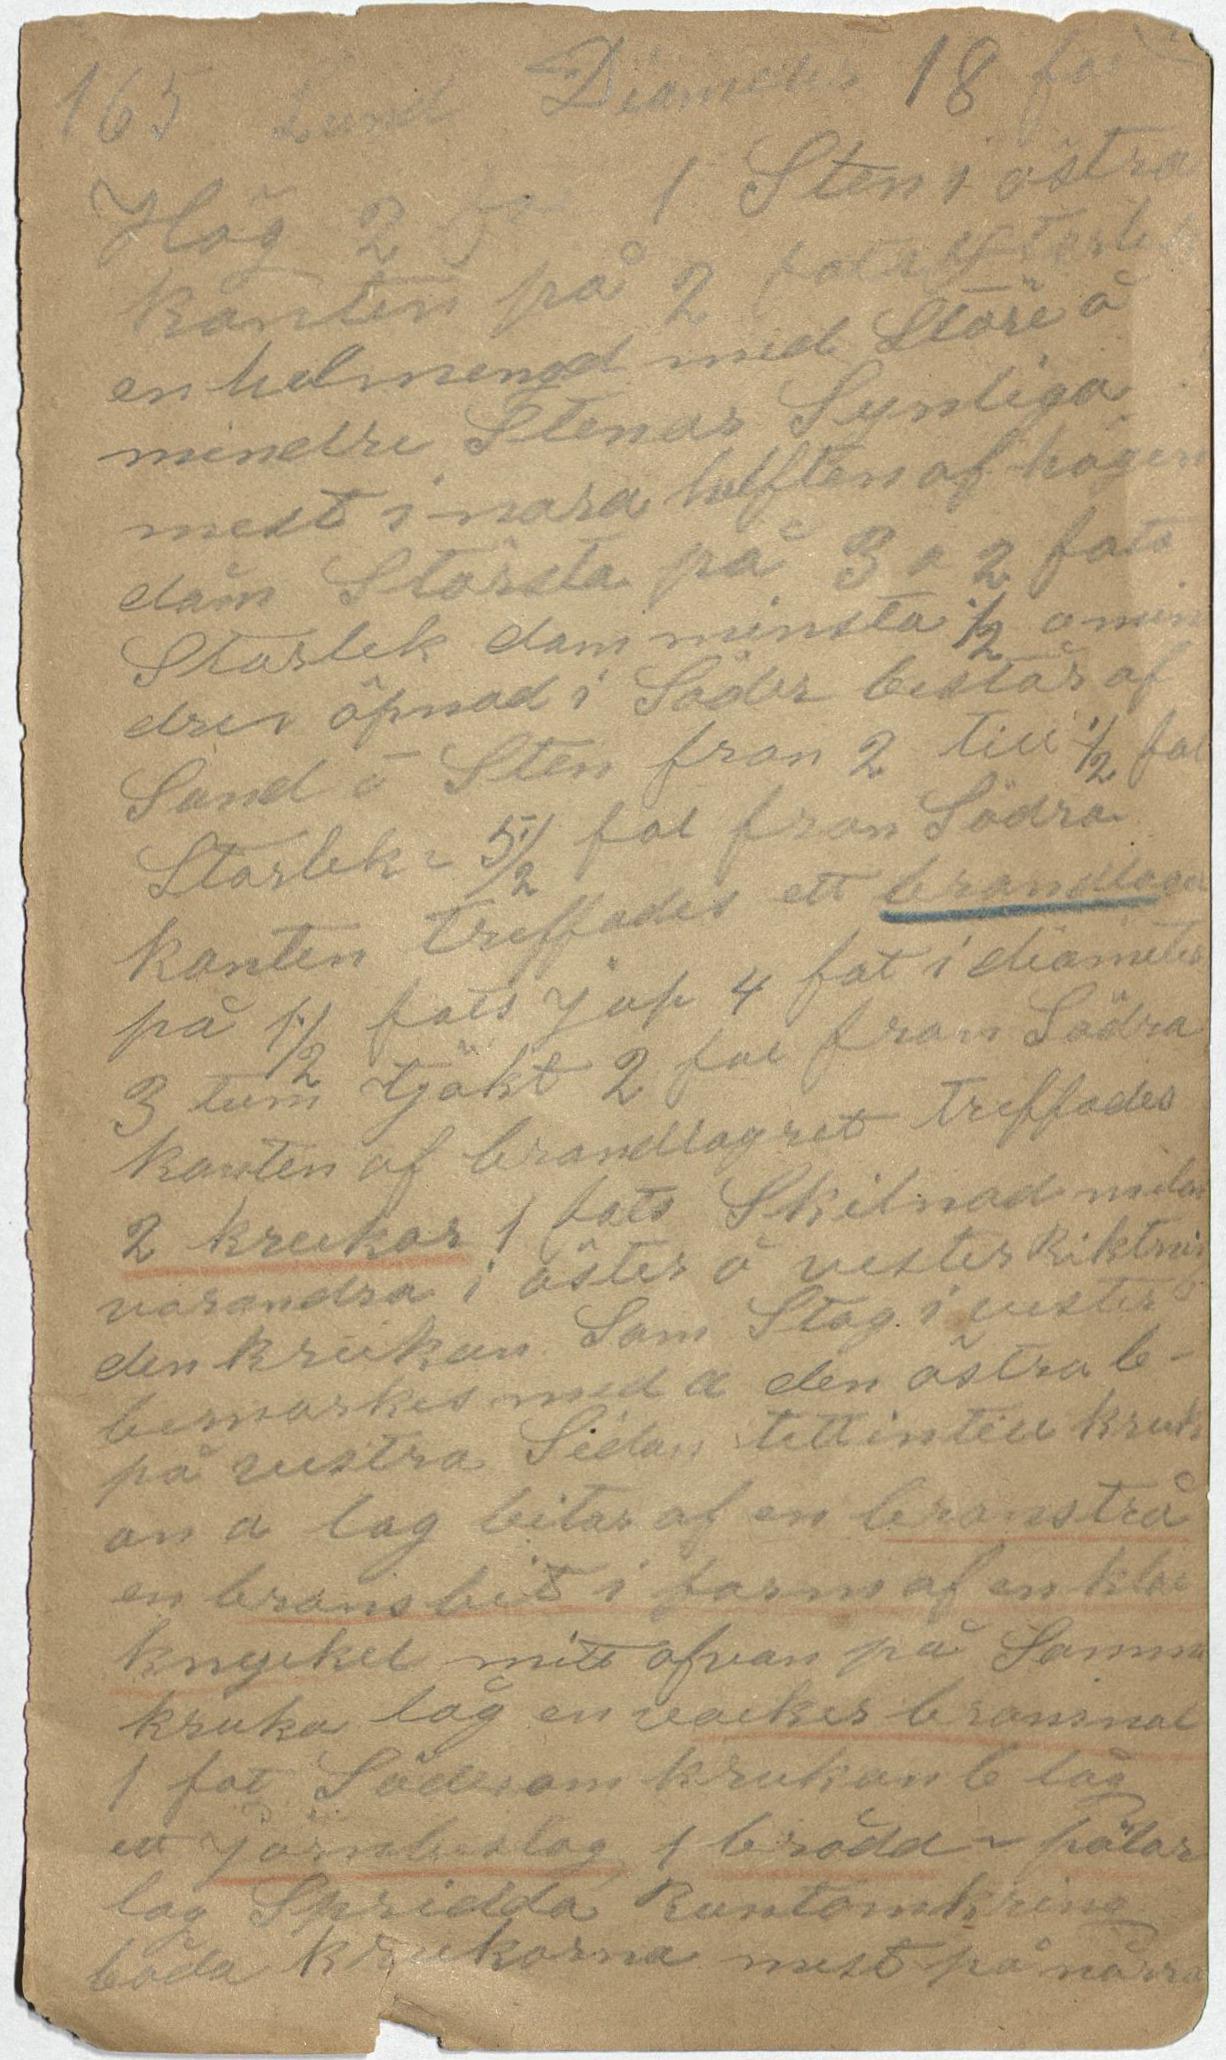 165 Lund Diameter 18 fot
Hög 2 fot 1 Sten i östra
kanten på 2 fots storlek
en helmengd med Störe å
mindre Stenar Synliga
mest i nora helften af högen
däm Största på 3 a 2 fots
Storlek dam minsta 1/2 a min
dre öpnad i Söder består af
Sand å Sten fron 2 till 1/2 fot
Storlek = 5 1/2 fot fron Södra
kanten treffades ett brandlager
på 1 1/2 fots jup 4 fot i diameter
3 tum tjokt 2 fot from Södra
kanten af brandlagret treffades
2 krukor 1 fots Skilnad milan
varandra i öster å vester Riktnin
den krukan Som Stog i vester
bemarkes med a den östra b -
på vestra Sidan tett intill kruk
an a lag bitar af en bronstrå
en bronsbit i form af en
knyckel mitt ofvan på Samma
kruka låg en vacker bronsnal
1 fot Söder om krukan b låg
ett järnbeslag 1 brådd ~ pälar
lag Spridda Runtomkring
båda krukorna mest på nårra